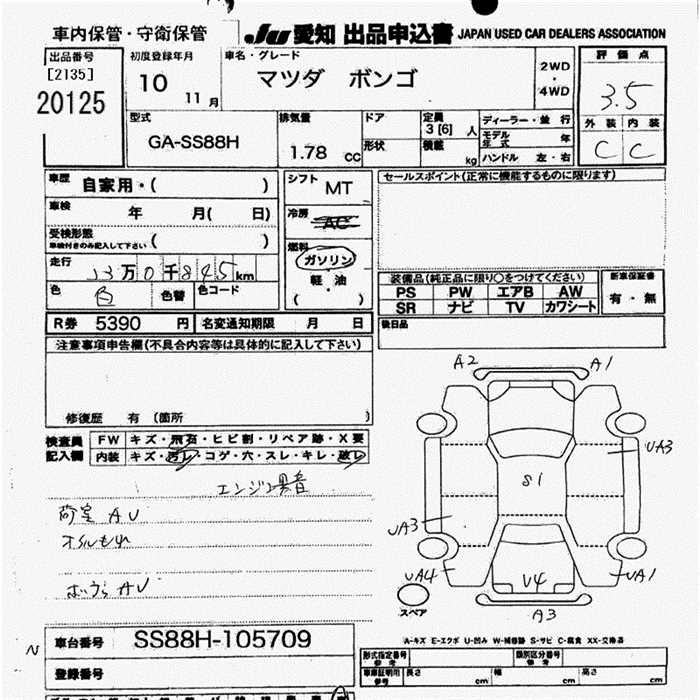 車内保管・守衛保管
JU 愛知 出品申込書 JAPAN USED CAR DEALERS ASSOCIATION
出品番号
[2135]
20125
初度登録年月
10
11月
車名・グレード
マツダ ボンゴ
2WD
・
4WD
評価点
3.5
外装 内装
C C
型式
GA-SS88H
排気量
1.78 cc
ドア
形状
定員
3[6] 人
積載
kg
ディーラー・並行
モデル年式 年
ハンドル 左・右
車歴
自家用・( )
車検
年 月( 日)
受検形態
車検付きのみ記入して下さい ( )
走行
13万0千845km
色
白
色替
色コード
シフト
MT
冷房
AC
燃料
ガソリン
・
軽油
( )
セールスポイント(正常に機能するものに限ります)
装備品(純正品に限り○をつけてください)
PS PW エアB AW
SR ナビ TV カワシート
新車保証書
有・無
後日品
R券 5390 円 名変通知期限 月 日
注意事項申告欄(不具合内容等は具体的に記入して下さい)
修復歴 有 (箇所 )
検査員
記入欄
FW キズ・飛石・ヒビ割・リペア跡・X要
内装 キズ・汚レ・コゲ・穴・スレ・キレ・破レ
エンジン異音
荷室 AU
オイルもれ
ボウラ AU
A2
A1
UA3
S1
UA3
UA4
U4
UA1
A3
スペア
A-キズ E-エクボ U-凹み W-補修跡 S-サビ C-腐食 XX-交換済
N
車台番号 SS88H-105709
登録番号
形式指定番号
参考
類別区分番号
参考
車庫証明用
参考
長さ cm
幅 cm
高さ cm